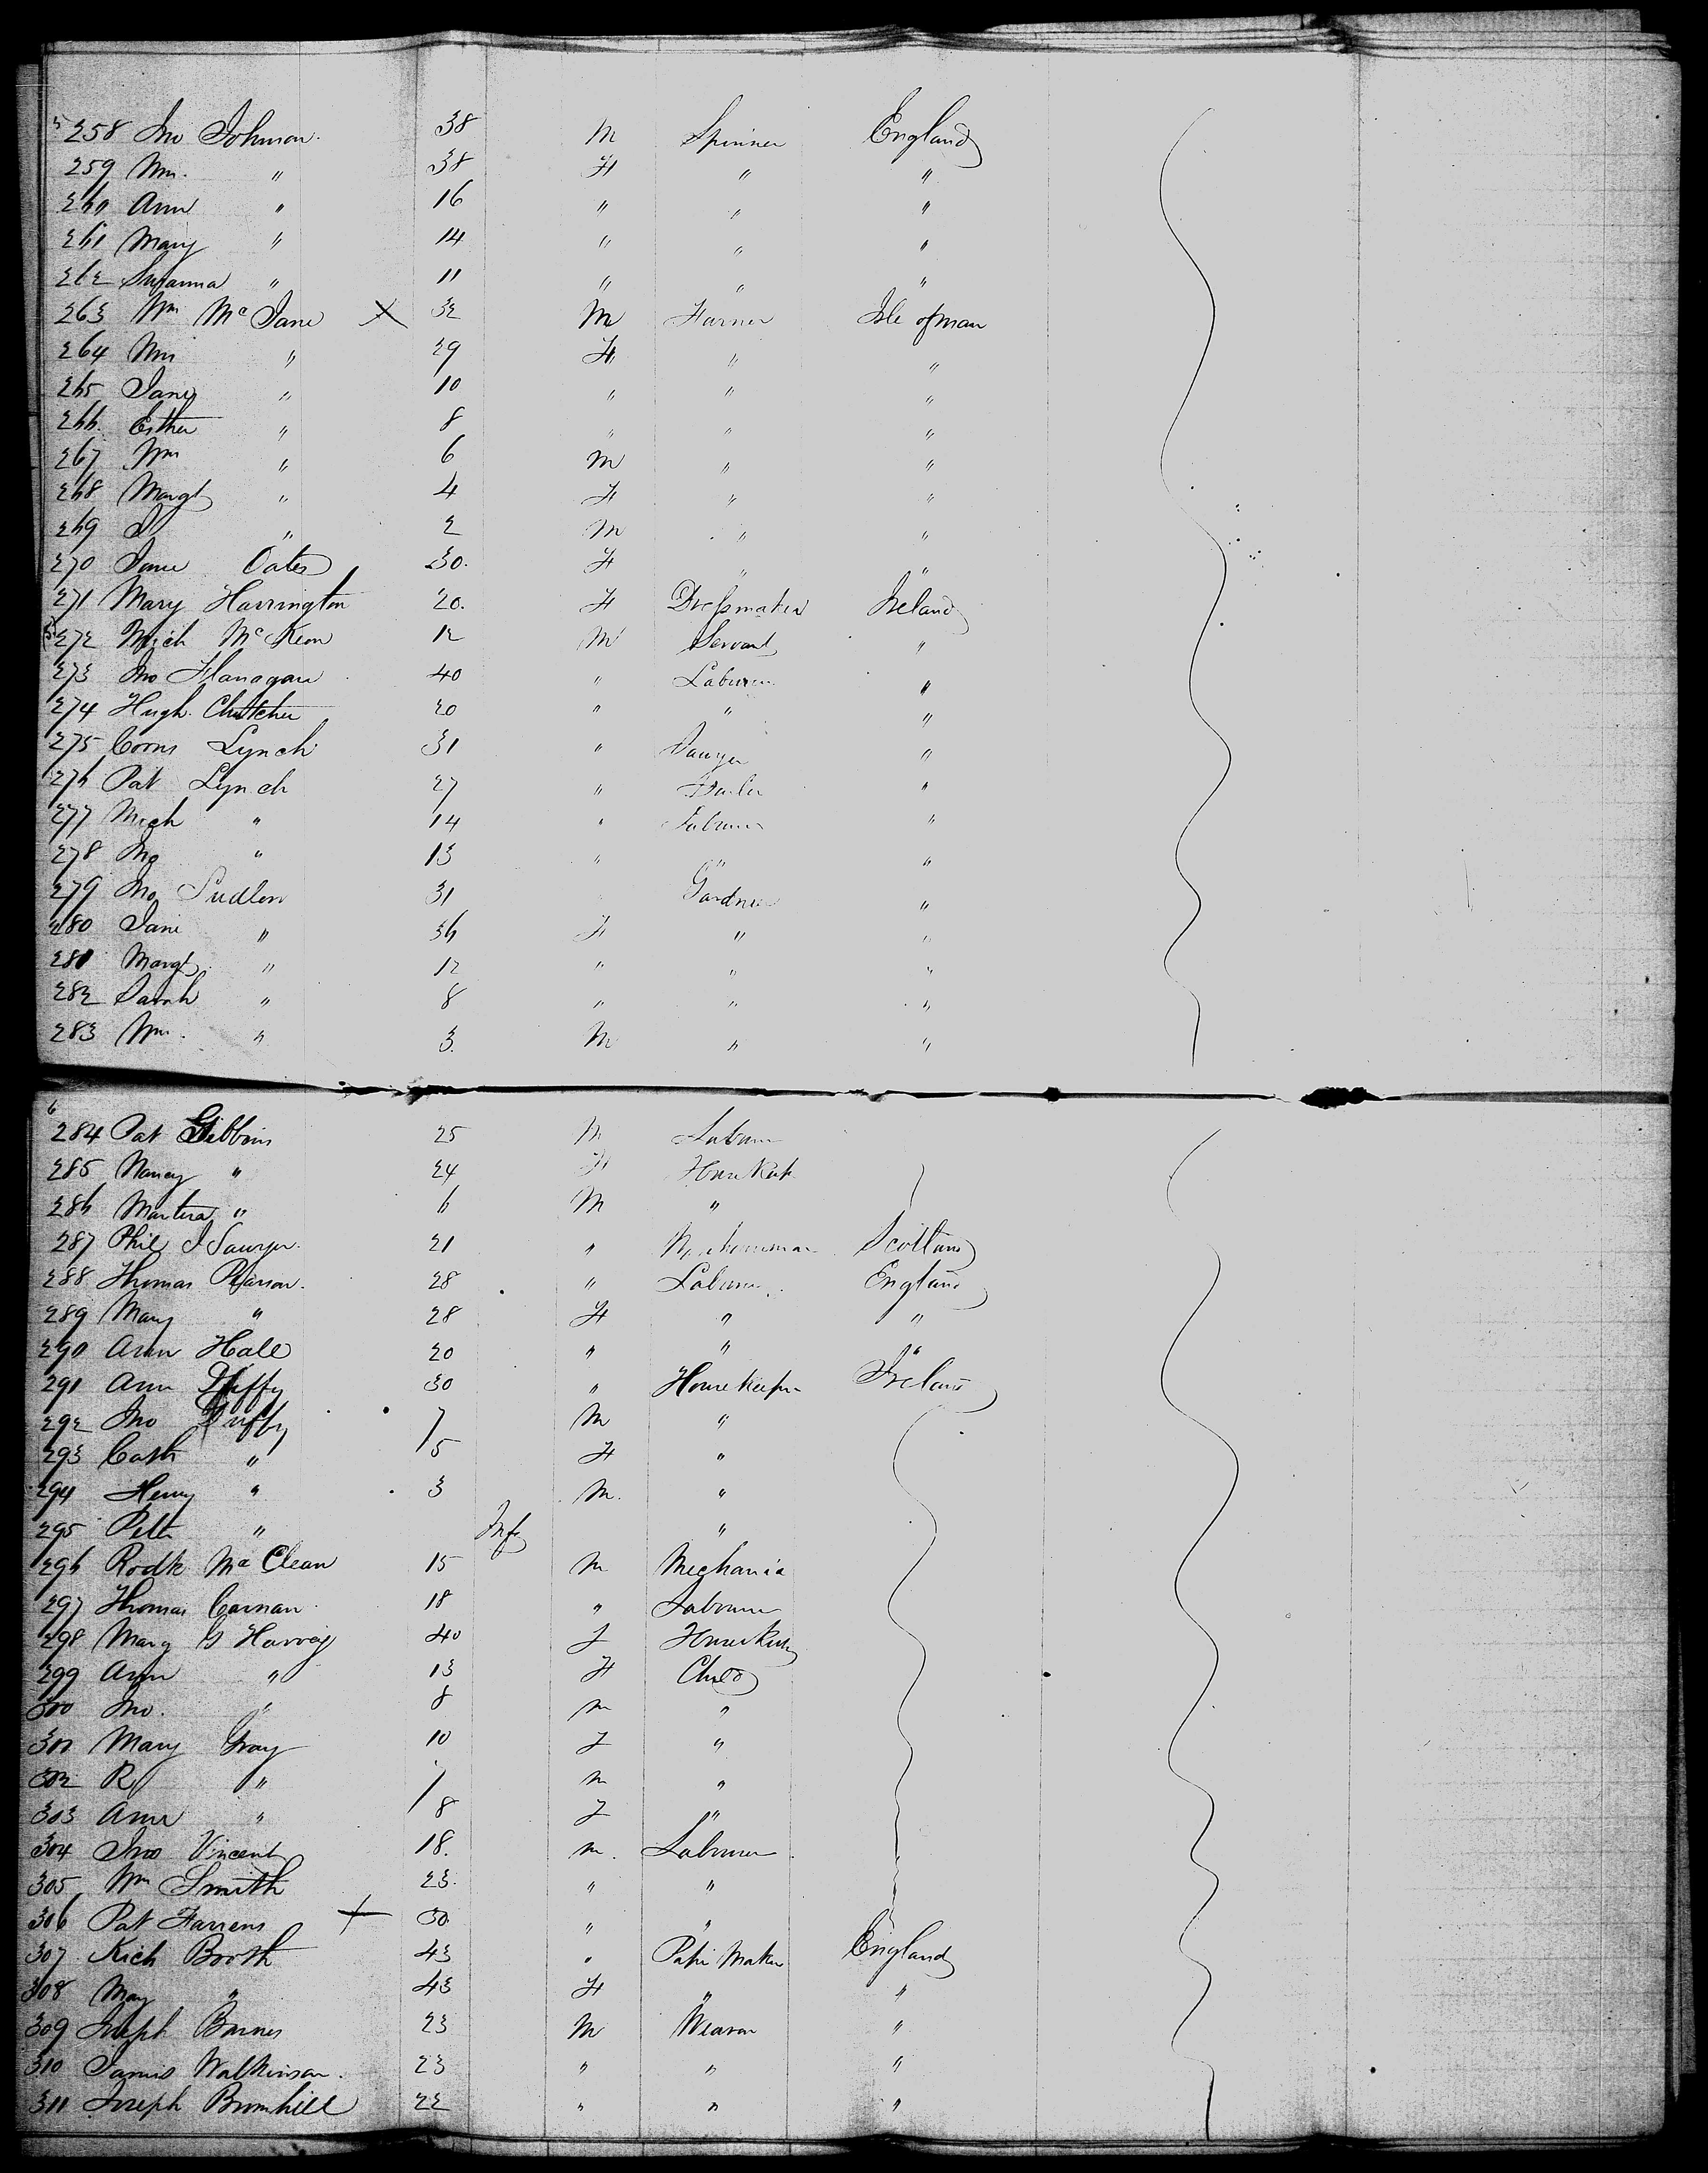 5
258 Jno Johnson. 38 M Spinner England
259 Mrs. " 38 F " "
260 Ann " 16 " " "
261 Mary " 14 " " "
262 Susanna " 11 " " "
263 Wm Mc Jane X 32 M Farmer Isle of man
264 Mrs " 29 F " "
265 Jane " 10 " " "
266. Esther " 8 " " "
267 Wm " 6 M " "
268 Margt " 4 F " "
269 J " 2 M " "
270 Jane Oates 30. F " "
271 Mary Harrington 20. F Dressmaker Ireland
272 Mich McKeon 12 M Servant "
273 Jno Flanagan 40 " Labourer "
274 Hugh 20 " " "
275 Corns Lynch 31 " Sawyer "
276 Pat Lynch 27 " "
277 Mich " 14 " Labourer "
278 Jno " 13 " " "
279 Jno Sudlow 31 Gardner "
280 Jane " 36 F " "
281 Margt " 12 " " "
282 Sarah " 8 " " "
283 Wm. " 3. M " "
6
284 Pat Gibbins 25 M Labourer
285 Nancy " 24 F House Keep
286 " 6 M "
287 Phil J Sawyer. 21 " Warehouseman Scotland
288 Thomas Pearson. 28 " Labourer England
289 Mary " 28 F " "
290 Ann Hall 20 " " "
291 Ann Duffy 30 " House keeper Ireland
292 Jno Duffy 7 M "
293 Cath " 5 F "
294 Henry " 3 M. "
295 Peter " Inft "
296 Rodk McClean 15 m Mechanic
297 Thomas Carnan 18 " Labourer
298 Mary G Harvey 40 f House Keep
299 Ann " 13 F Child
300 Jno. " 8 m "
301 Mary Gray 10 f "
302 R " m "
303 Ann " 8 f "
304 Jno Vincent 18. m. Labourer
305 Wm Smith 23. " "
306 Pat Farrens + 30 " "
307 Rich Booth 43 " Paper Maker England
308 May " 43 F " "
309 Joseph Barnes 23 M Weaver "
310 James Walkinson. 23 " " "
311 Joseph Bromhill 22 " " "